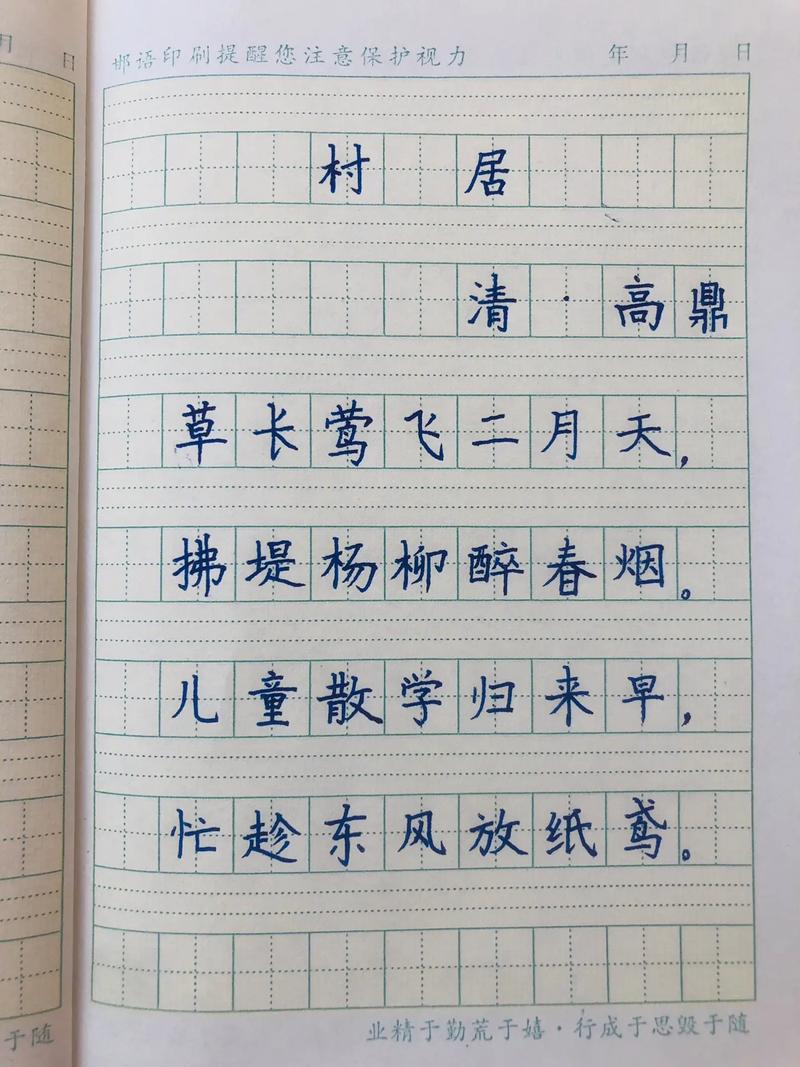 月 日
邯语印刷提醒您注意保护视力 年 月 日
村 居
清·高鼎
草长莺飞二月天，
拂堤杨柳醉春烟。
儿童散学归来早，
忙趁东风放纸鸢。
于随
业精于勤荒于嬉·行成于思毁于随